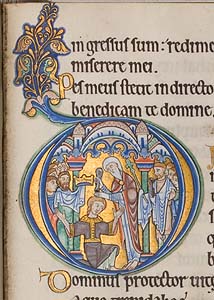 in gressus sum: redime
miserere mei.
Pes meus stetit in direct
benedicam te domine.
Dominus protector uite